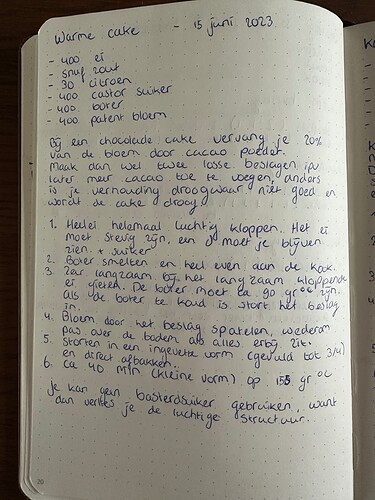 Warme cake - 15 juni 2023
- 400 ei
- snuf zout
- 30 citroen
- 400 castor suiker
- 400 boter
- 400 patent bloem
Bij een chocolade cake vervang je 20%
van de bloem door cacao poeder.
Maak dan wel twee losse beslagen ipv
later meer cacao toe te voegen, anders
is je verhouding droogwaar niet goed en
wordt de cake droog
1. Heelei helemaal luchtig kloppen. Het ei
moet stevig zijn, een J moet je blijven
zien. + suiker
2. Boter smelten en heel even aan de kook.
3. Zeer langzaam bij het langzaam kloppende
ei gieten. De boter moet ca 90 gr °C zijn,
als de boter te koud is stort het beslag
in.
4. Bloem door het beslag spatelen, wederom
pas over de bodem als alles erbij zit.
5. Storten in een ingevette vorm (gevuld tot 3/4)
en direct afbakken.
6. ca 40 min (kleine vorm) op 155 gr °C
Je kan geen basterdsuiker gebruiken, want
dan verlies je de luchtige structuur.
20